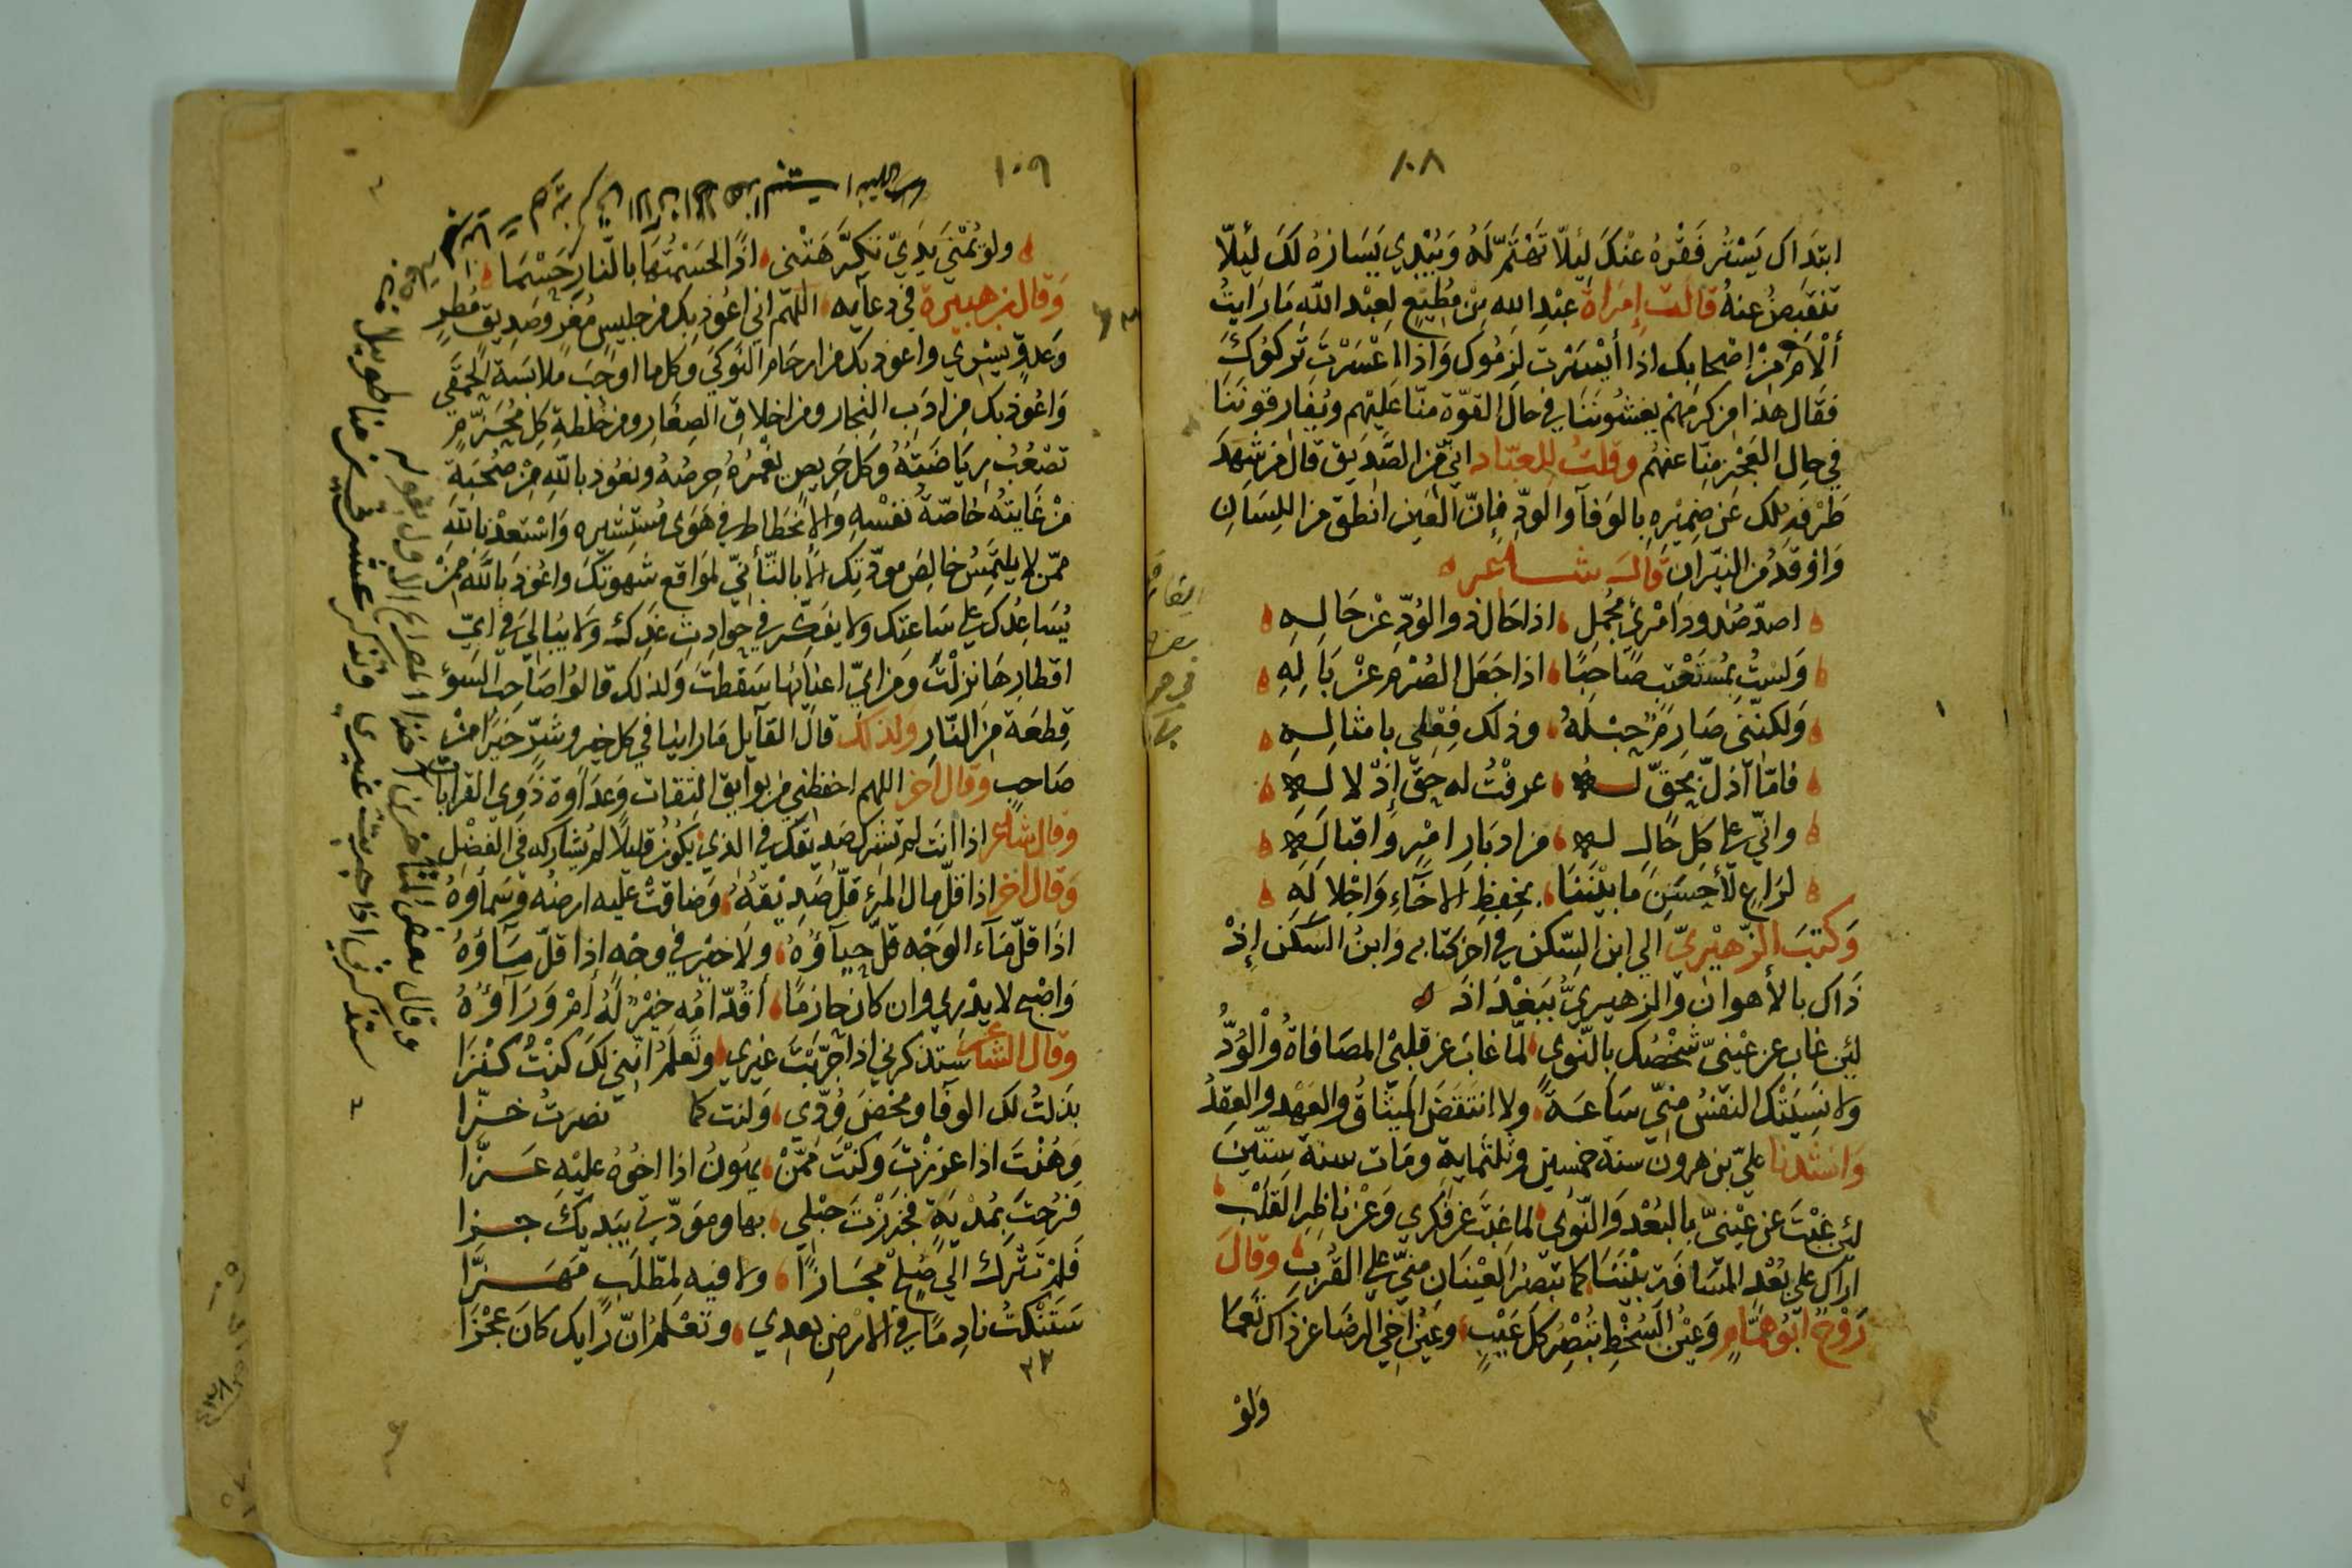 ١٠٨
ابتداك يَسْتر فَقْرهُ عنْكَ لِئلاّ تَهْتَمّ لَهُ وَيُبْدي يَسَارَهُ لَكَ لِئلاّ
تنقبضُ عنهُ قالت إمراة عبْدِ الله بْن مُطِيْعٍ لِعبْد الله مَا رَايتُ
ألْأمَ مِنْ اصْحابك اذا أيْسَرْت لزمُوك وَاذا اعْسَرْتَ تَركوُكَ
فقال هٰذا من كرمهمْ يغشُونَنَا في حال القوّة منّا عَليْهم ويُفارقونَنَا
في حالِ العَجْزِ مِنّا عنهُم وقلتُ للعبّاد انّي من الصَّديق قال من شهدَ
طَرْفه لك عَن ضميْرهِ بالوَفآ والودّ فإنّ العَين انطق من اللِسَان
وَاوقدُ من النيّران قالَ شاعر
اصدّ صُدودَ امْرئٍ مُجْملٍ اذا حَال ذو الوُدّ عَنْ حَالِهِ
وَلسْتُ بمُسْتَعْتِبٍ صَاحِبًا اذا جَعَل الصُرْم عَنْ بَالِهِ
وَلكنّني صَارمٌ حبْلَهُ وذلك فِعْلي بامثالِهِ
فامّا اذلّ بحَقٍّ له عرفْتُ له حقّ إذْلالِهِ
وانّي على كل حَالٍ له من ادبَارِ امْرٍ وَاقبالِهِ
لرَاعٍ لأحسَنِ مَا بيْنَنا بحفظِ الاخآءِ وَاجْلالِهِ
وَكتبَ الزّهيْريّ الي ابن السّكن في اخر كتابه وَابنُ السَكَن إذْ
ذَاك بالأهوان وَالزهيريُّ ببَغْدَاذَ
لئِن غاب عن عيْنيّ شخْصُك بالنّوى لمّا غابَ عن قلبيْ المصَافاةُ وَالْوُدُّ
ولا نسَيَتْك النفسُ منّي سَاعةً ولا انتقضَ الميثاقُ والعَهْد والعِقدُ
وَانشدنا عليّ بن هرون سنة خمسين وثلثماية ومَات سنة ستّينَ
لئن غبْتَ عن عيْنيّ بالبُعْد وَالنّوى لما غبتَ عن فكري وَعنْ ناظرِ القَلْب
اراك على بُعْد المسَافة بيْننَا كما تبصرُ العيْنَان منيّ على القُرْبِ وقالَ
رَوْحٌ ابُو همَّامٍ وَعيْنُ السُخْطِ تبْصِرُ كل عَيْبٍ وعَينُ اخي الرضَا عن ذَاك تَعْمَا
وَلوْ
١٠٩
ولو تُمْنَى يَدِيّ تكرَّهَتْني اذًا لحَسَمْتُها بالنّارِ حَسْمَا
وَقال بن هبيرة في دعآيه اللّهم اني اعُوذ بك من جليسٍ مُغرٍ وصَديقٍ مُطرٍ
وَعَدوٍّ يسْري واعوذ بك من ارحَام النَوكَي وكل ما اوْجَبَ ملابَسَة الحمَقَي
وَاعُوذ بك من ادَبِ التجار ومن اخلاق الصِغار ومن خلطةِ كل مُحرَّمٍ
تصْعُبُ رِيَاضَتُهُ وَكل حَريصٍ يغْمرُهُ حِرصُهُ ونعُوذ باللّهِ مِنْ صُحْبَةِ
مَنْ غايتهُ خاصّة نفسْهِ والانحَطاط في هَوَى مُسْتشيره وَاسْتعدْنا باللّهِ
ممّن لا يلتمسُ خالِصَ مودّتك الّا بالتّأنّيّ لمواقع شهْوتكَ واعُوذ باللّه ممَّنْ
يُسَاعدك على سَاعتِك ولا يفكّر في حَوادِث غدِكَ وَلا يُبَالي في ايّ
اقطارِهَا نزلْتَ وَمن ايّ اعنَانهَا سَقطتَ وَلذلك قالوُا صَاحب السَوءِ
قِطعَة مِنَ النّار ولذلك قال القآيل مَا راينا في كل خيرٍ وشرٍّ خَيْرًا مِنْ
صَاحبٍ وَقال اخر اللهم احفظني من بوايق الثقات وعَدَاوة ذوي القرابات
وقال شاعر اذا انتَ لم تشرك صديقك في الذي يكوُن قليلاً لم يُشَاركه في الفضْل
وَقال اخر اذا قلّ مال المرءِ قلّ صَدِيْقهُ وَضاقتْ عَليه ارضُه وَسَماؤهُ
اذا قلّ مَآء الوَجْه قلّ حيآؤهُ ولا خيْر في وجْهٍ إذا قلّ مَآؤهُ
وَاصْبح لا يدري وان كان حازمًا أقُدّامُه خَيْرٌ لَهُ أمْ وَرَآؤهُ
وقال الشاعر سَتذكرني اذا جَرّبْتَ غيري وتَعلَمُ انّني لكَ كنْتُ كنْزا
بذلتُ لك الوفا ومخْضَ وُدّي وَلنت كما نضرتُ خزّا
وَهُنْتَ اذا عززْتَ وكنْتَ ممّنْ يهُونُ اذا اخُوهُ عليْهِ عزّا
فرُحتَ بمُدْيَةٍ فحزَزْتَ حبْلي بها ومَودّتي بيَديكَ جزّا
فَلمْ تتْرك الي صُلحٍ مجَازًا ولا فيه لمطلبٍ مَهزَّا
سَتَنْكتُ نادِمًا في الارْضِ بعدي وتَعْلمُ انّ رَايك كان عَجْزَا
وقال بعض المتاخرين اخذا المصراع الاول بقوله
ستذكرني اذا جربت غيري وتذكر